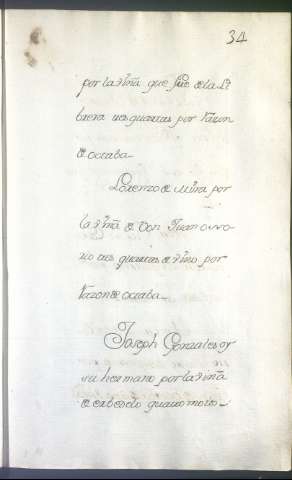 34
por la Viña que fue de la Ri
buera tres quartas por razon
de octaba-
Lorenzo de Mira por
la Viña de Don Juan
rio tres quartas de Vino por
razon de octaba-
Joseph Gonzales y
su hermano por la Viña
de quatro moios-